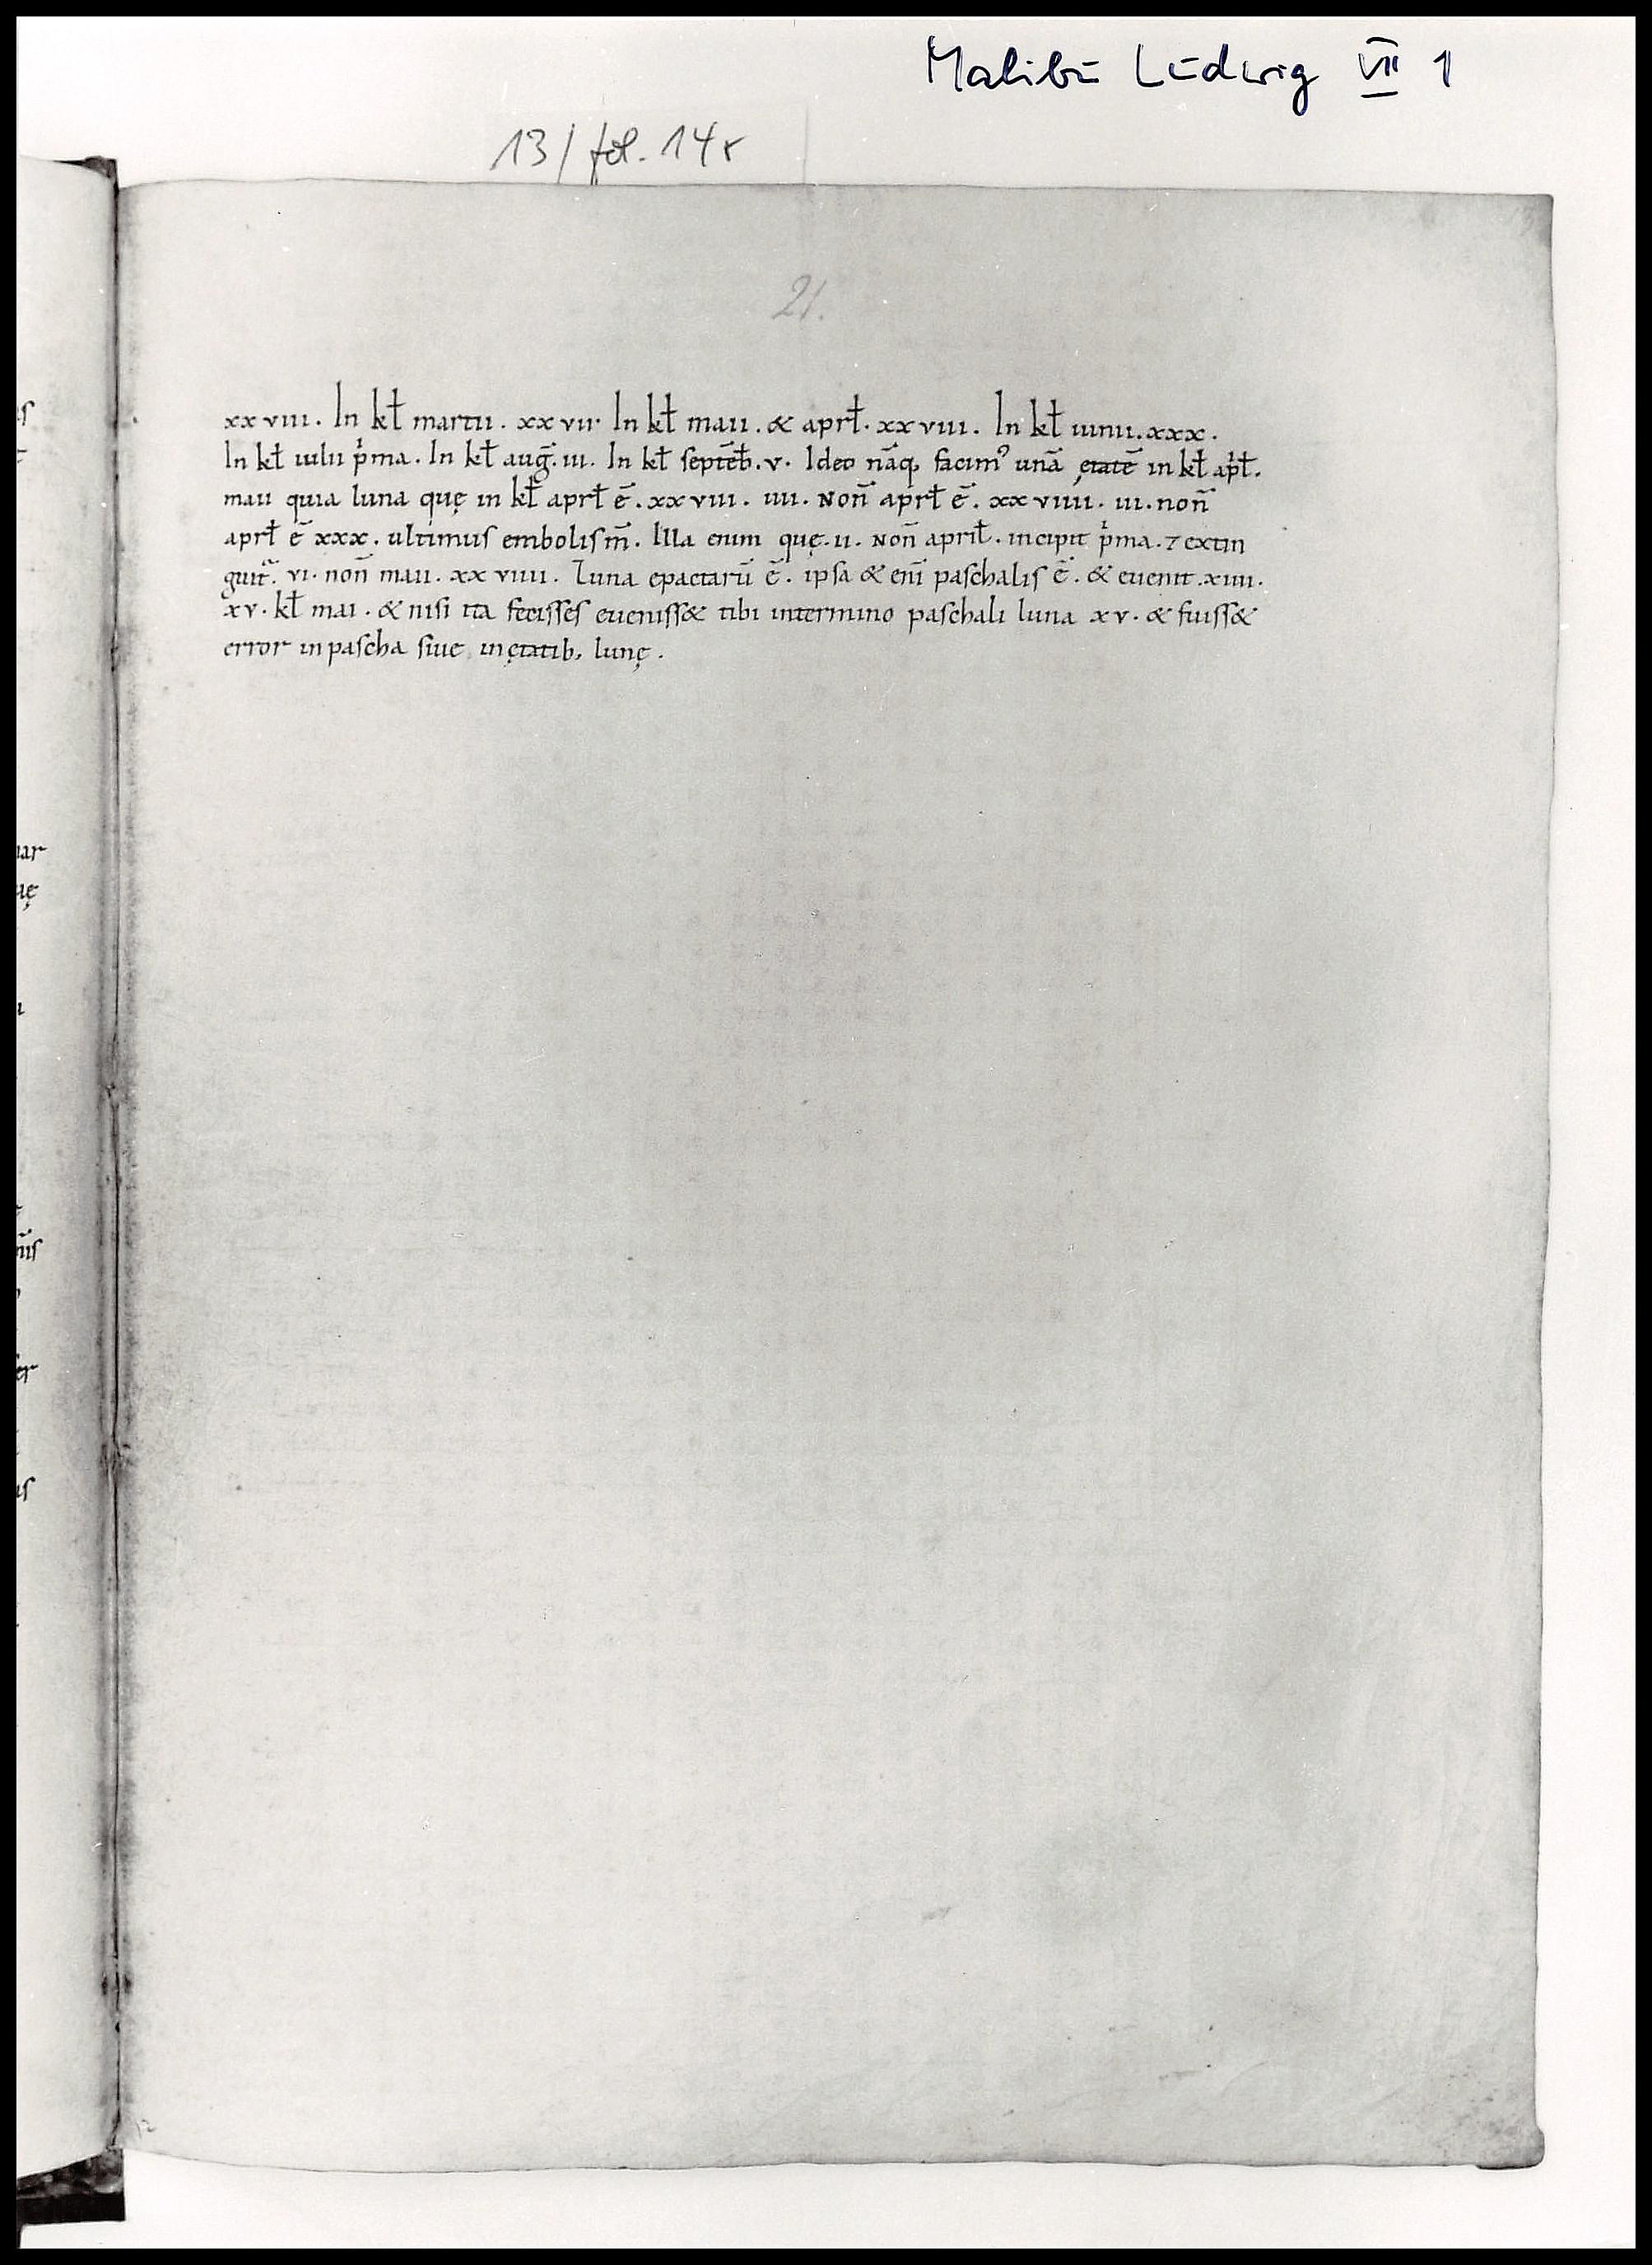 Malibu Ludwig VII 1
13/ fol. 14r
21.
xxviii. In kł martii. xxvii. In kł maii. & aprł. xxviii. In kł iunii. xxx.
In kł iulii p̍ma. In kł aug̃. iii. In kł septēb̄. v. Ideo nāq, facimꝰ unā ętatē in kł ap̍ł.
maii quia luna quę in kł aprł ē. xxviii. iiii. Noñ aprł ē. xxviiii. iii. noñ
aprł ē xxx. ultimus embolism̄. Illa enim quę. ii. Noñ aprił. incipit p̍ma. ⁊ extin
guit᷑. vi. noñ maii. xxviiii. Luna epactarū ē. ipsa & enī paschalis ē. & euenit. xiiii.
xv. kł mai. & nisi ita fecisses eueniss& tibi intermino paschali luna xv. & fuiss&
error in pascha siue in ętatib, lunę.